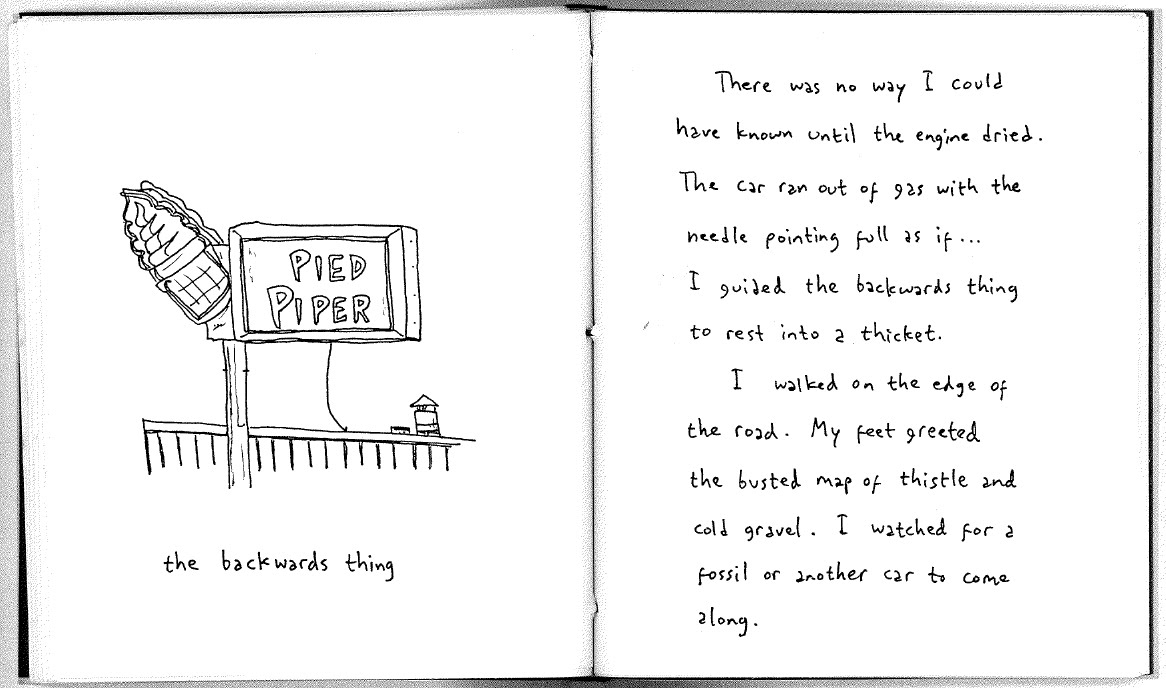 PIED
PIPER
the backwards thing
There was no way I could
have known until the engine dried.
The car ran out of gas with the
needle pointing full as if...
I guided the backwards thing
to rest into a thicket.
I walked on the edge of
the road. My feet greeted
the busted map of thistle and
cold gravel. I watched for a
fossil or another car to come
along.